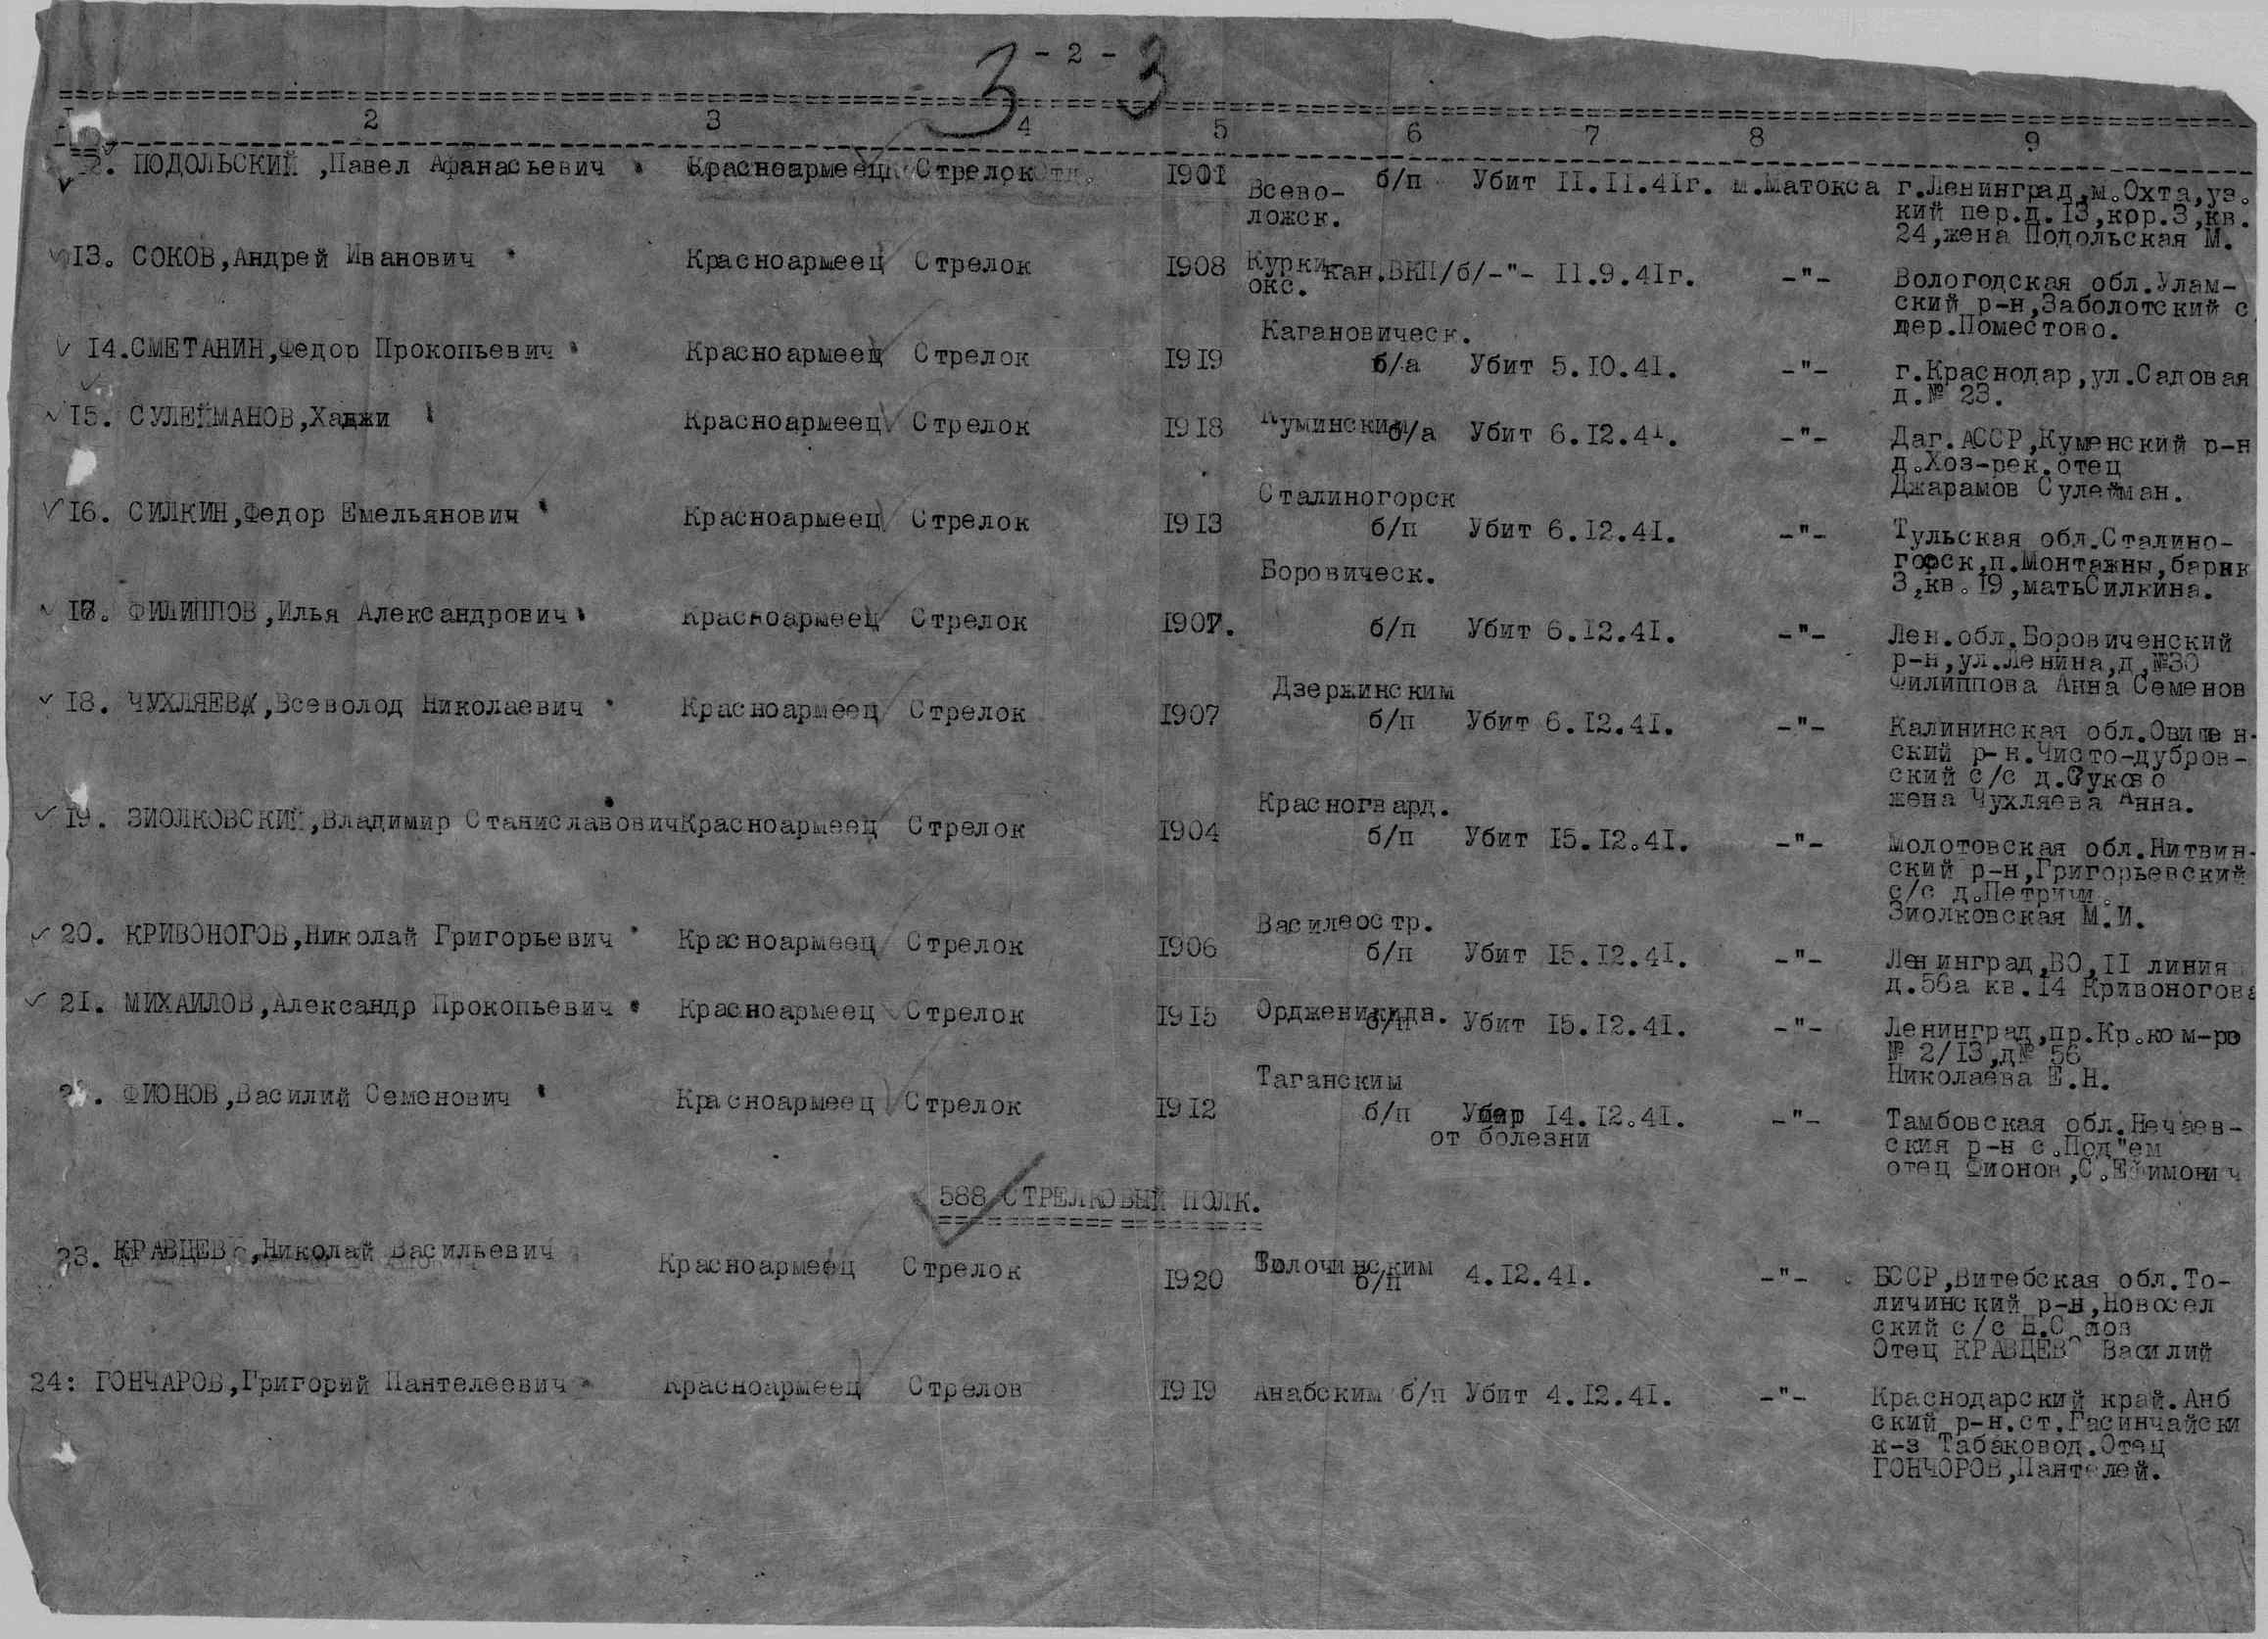 - 2 -
3 3
2 3 4 5 6 7 8 9
ПОДОЛЬСКИЙ ,Павел Афанасьевич Красноармеец Стрелок 1901 Всево- б/п Убит II.II.41г. м.Матокса г.Ленинград,м.Охта,уз.
ложск. кий пер.д.I3,кор.3,кв.
24,жена Подольская М.
I3. СОКОВ,Андрей Иванович Красноармеец Стрелок I908 Курки- кан.ВКП/б/-"- II.9.4Iг. -"- Вологодская обл.Улам-
окс. ский р-н,Заболотский с
дер.Поместово.
Кагановическ.
I4.СМЕТАНИН,Федор Прокопьевич Красноармеец Стрелок I9I9 б/а Убит 5.I0.4I. -"- г.Краснодар,ул.Садовая
д.№ 23.
I5. СУЛЕЙМАНОВ,Хаджи Красноармеец Стрелок I9I8 Куминским б/а Убит 6.I2.4I. -"- Даг.АССР,Куменский р-н
д.Хоз-рек.отец
Джарамов Сулейман.
Сталиногорск
I6. СИЛКИН,Федор Емельянович Красноармеец Стрелок I9I3 б/п Убит 6.I2.4I. -"- Тульская обл.Сталино-
горск,п.Монтажны,барик
3,кв.I9,матьСилкина.
Боровическ.
I7. ФИЛИППОВ,Илья Александрович Красноармеец Стрелок I907. б/п Убит 6.I2.4I. -"- Лен.обл.Боровиченский
р-н,ул.Ленина,д,№30
Филиппова Анна Семенов
Дзержинским
I8. ЧУХЛЯЕВ,Всеволод Николаевич Красноармеец Стрелок I907 б/п Убит 6.I2.4I. -"- Калининская обл.Овишен-
ский р-н.Чисто-дубров-
ский с/с д.Суково
жена Чухляева Анна.
Красногвард.
I9. ЗИОЛКОВСКИЙ,Владимир СтаниславовичКрасноармеец Стрелок I904 б/п Убит I5.I2.4I. -"- Молотовская обл.Нитвин-
ский р-н,Григорьевский
с/с д.Петричи.
Зиолковская М.И.
Василеостр.
20. КРИВОНОГОВ,Николай Григорьевич Красноармеец Стрелок I906 б/п Убит I5.I2.4I. -"- Ленинград,ВО,II линия
д.56а кв.I4 Кривоногова
2I. МИХАИЛОВ,Александр Прокопьевич Красноармеец Стрелок I9I5 Ордженикида. б/п Убит I5.I2.4I. -"- Ленинград,пр.Кр.ком-ро
№ 2/I3,д№ 56
Николаева Е.Н.
Таганским
ФИОНОВ,Василий Семенович Красноармеец Стрелок I9I2 б/п Умер I4.I2.4I. -"- Тамбовская обл.Нечаев-
от болезни ския р-н с.Под"ем
отец Фионов,С.Ефимович
588 СТРЕЛКОВЫЙ ПОЛК.
23. КРАВЦЕВ,Николай Васильевич Красноармеец Стрелок I920 Толочинским б/п 4.I2.4I. -"- БССР,Витебская обл.То-
личинский р-н,Новосел
ский с/с
Отец КРАВЦЕВ Василий
24: ГОНЧАРОВ,Григорий Пантелеевич Красноармеец Стрелов I9I9 Анабским б/п Убит 4.I2.4I. -"- Краснодарский край.Анб
ский р-н.ст.Гасинчайски
к-з Табаковод.Отец
ГОНЧОРОВ,Пантелей.